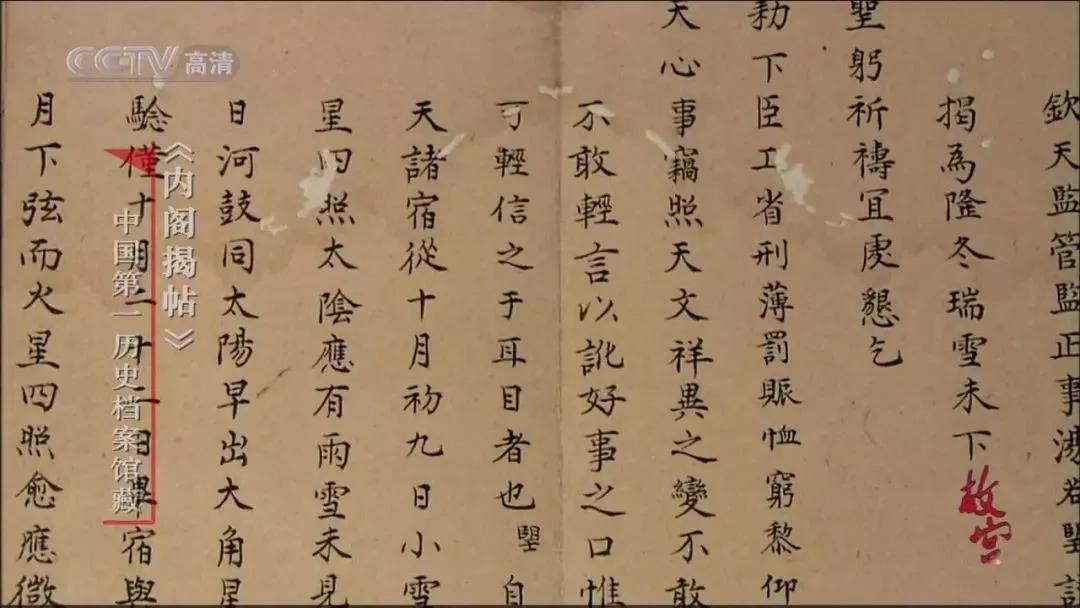 CCTV高清
欽天監管監正事湯若望
揭為隆冬瑞雪未下
聖躬祈禱宜處懇乞
勅下臣工省刑薄罰賑恤窮黎仰
天心事竊照天文祥異之變不敢
不敢輕言以訛好事之口惟
可輕信之于耳目者也望自
天諸宿從十月初九日小雪
星四照太陰應有雨雪未見
日河鼓同太陽早出大角星
騐僅十月二十二日畢宿與
月下弦而火星四照愈應微
《内阁揭帖》
中国第一历史档案馆藏
故宫